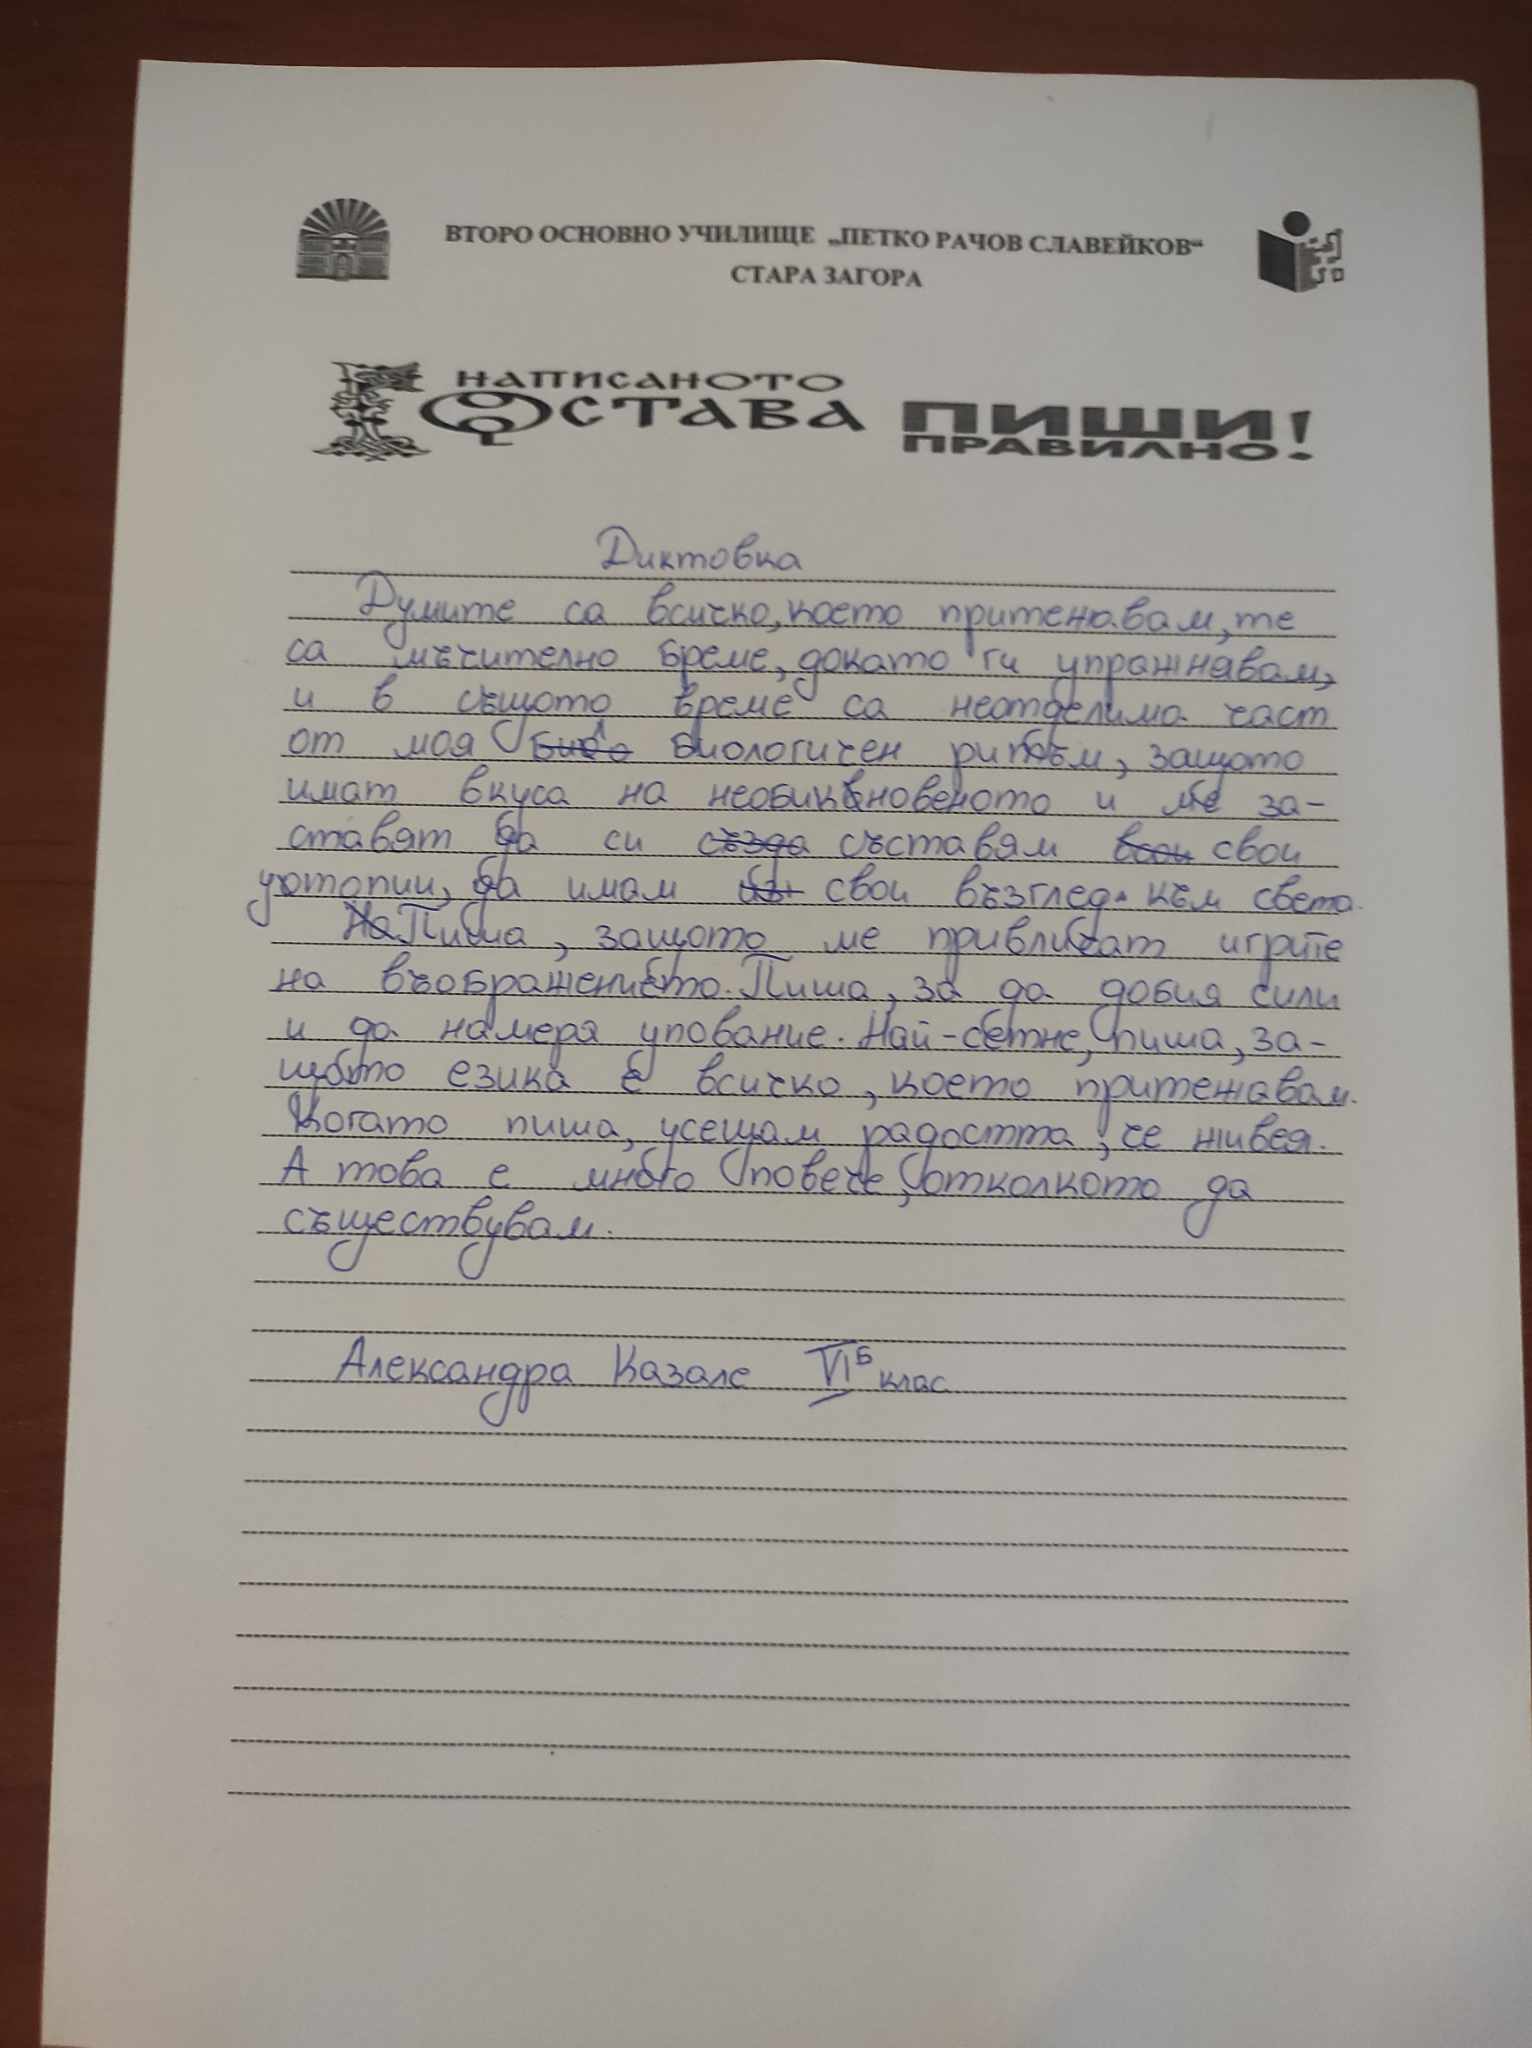 ВТОРО ОСНОВНО УЧИЛИЩЕ „ПЕТКО РАЧОВ СЛАВЕЙКОВ“
СТАРА ЗАГОРА
НАПИСАНОТО
ОСТАВА
ПИШИ
ПРАВИЛНО!
Диктовка
Думите са всичко, което притежавам, те
са мъчително бреме, докато ги упражнявам,
и в същото време са неотделима част
от моя биологичен ритъм, защото
имат вкуса на необикновеното и ме за-
ставят да си създа съставям всои свои
утопии, да имам свои възгледи към света.
На Пиша, защото ме привличат игрите
на въображението. Пиша, за да добия сили
и да намеря упование. Най-сетне, пиша, за-
щото езика е всичко, което притежавам.
Когато пиша, усещам радостта, че живея.
А това е много повече, отколкото да
съществувам.
Александра Казале VIБ клас